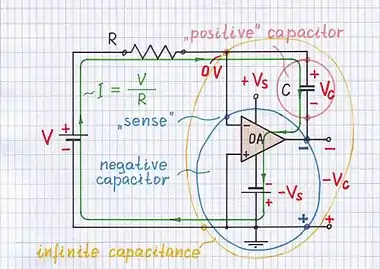 R
„positive" capacitor
0V
+
+Vs
C
Vc
-
I = V/R
V
+
-
„sense"
-
OA
+
-
-
negative
capacitor
-
+
-Vs
-Vc
+
+
infinite capacitance